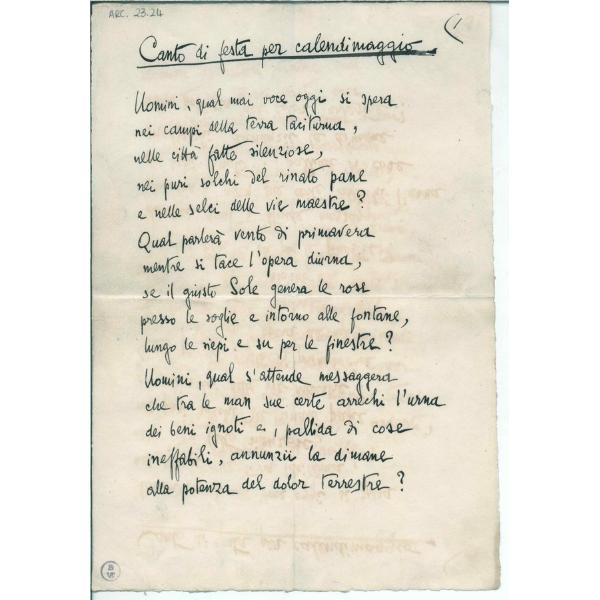 ARC. 23.24
1
Canto di festa per calendimaggio
Uomini, qual mai voce oggi si spera
nei campi della terra taciturna,
nelle città fatte silenziose,
nei puri solchi del rinato pane
e nelle selci delle vie maestre?
Qual parlerà vento di primavera
mentre si tace l'opera diurna,
se il giusto Sole genera le rose
presso le soglie e intorno alle fontane,
lungo le siepi e su per le finestre?
Uomini, qual s'attende messaggera
che tra le man sue certe arrechi l'urna
dei beni ignoti e, pallida di cose
ineffabili, annunzii la dimane
alla potenza del dolor terrestre?